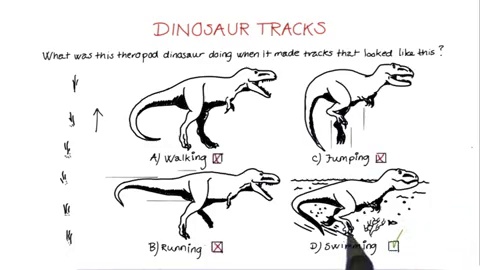 DINOSAUR TRACKS
What was this theropod dinosaur doing when it made tracks that looked like this?
A) Walking
C) Jumping
B) Running
D) Swimming